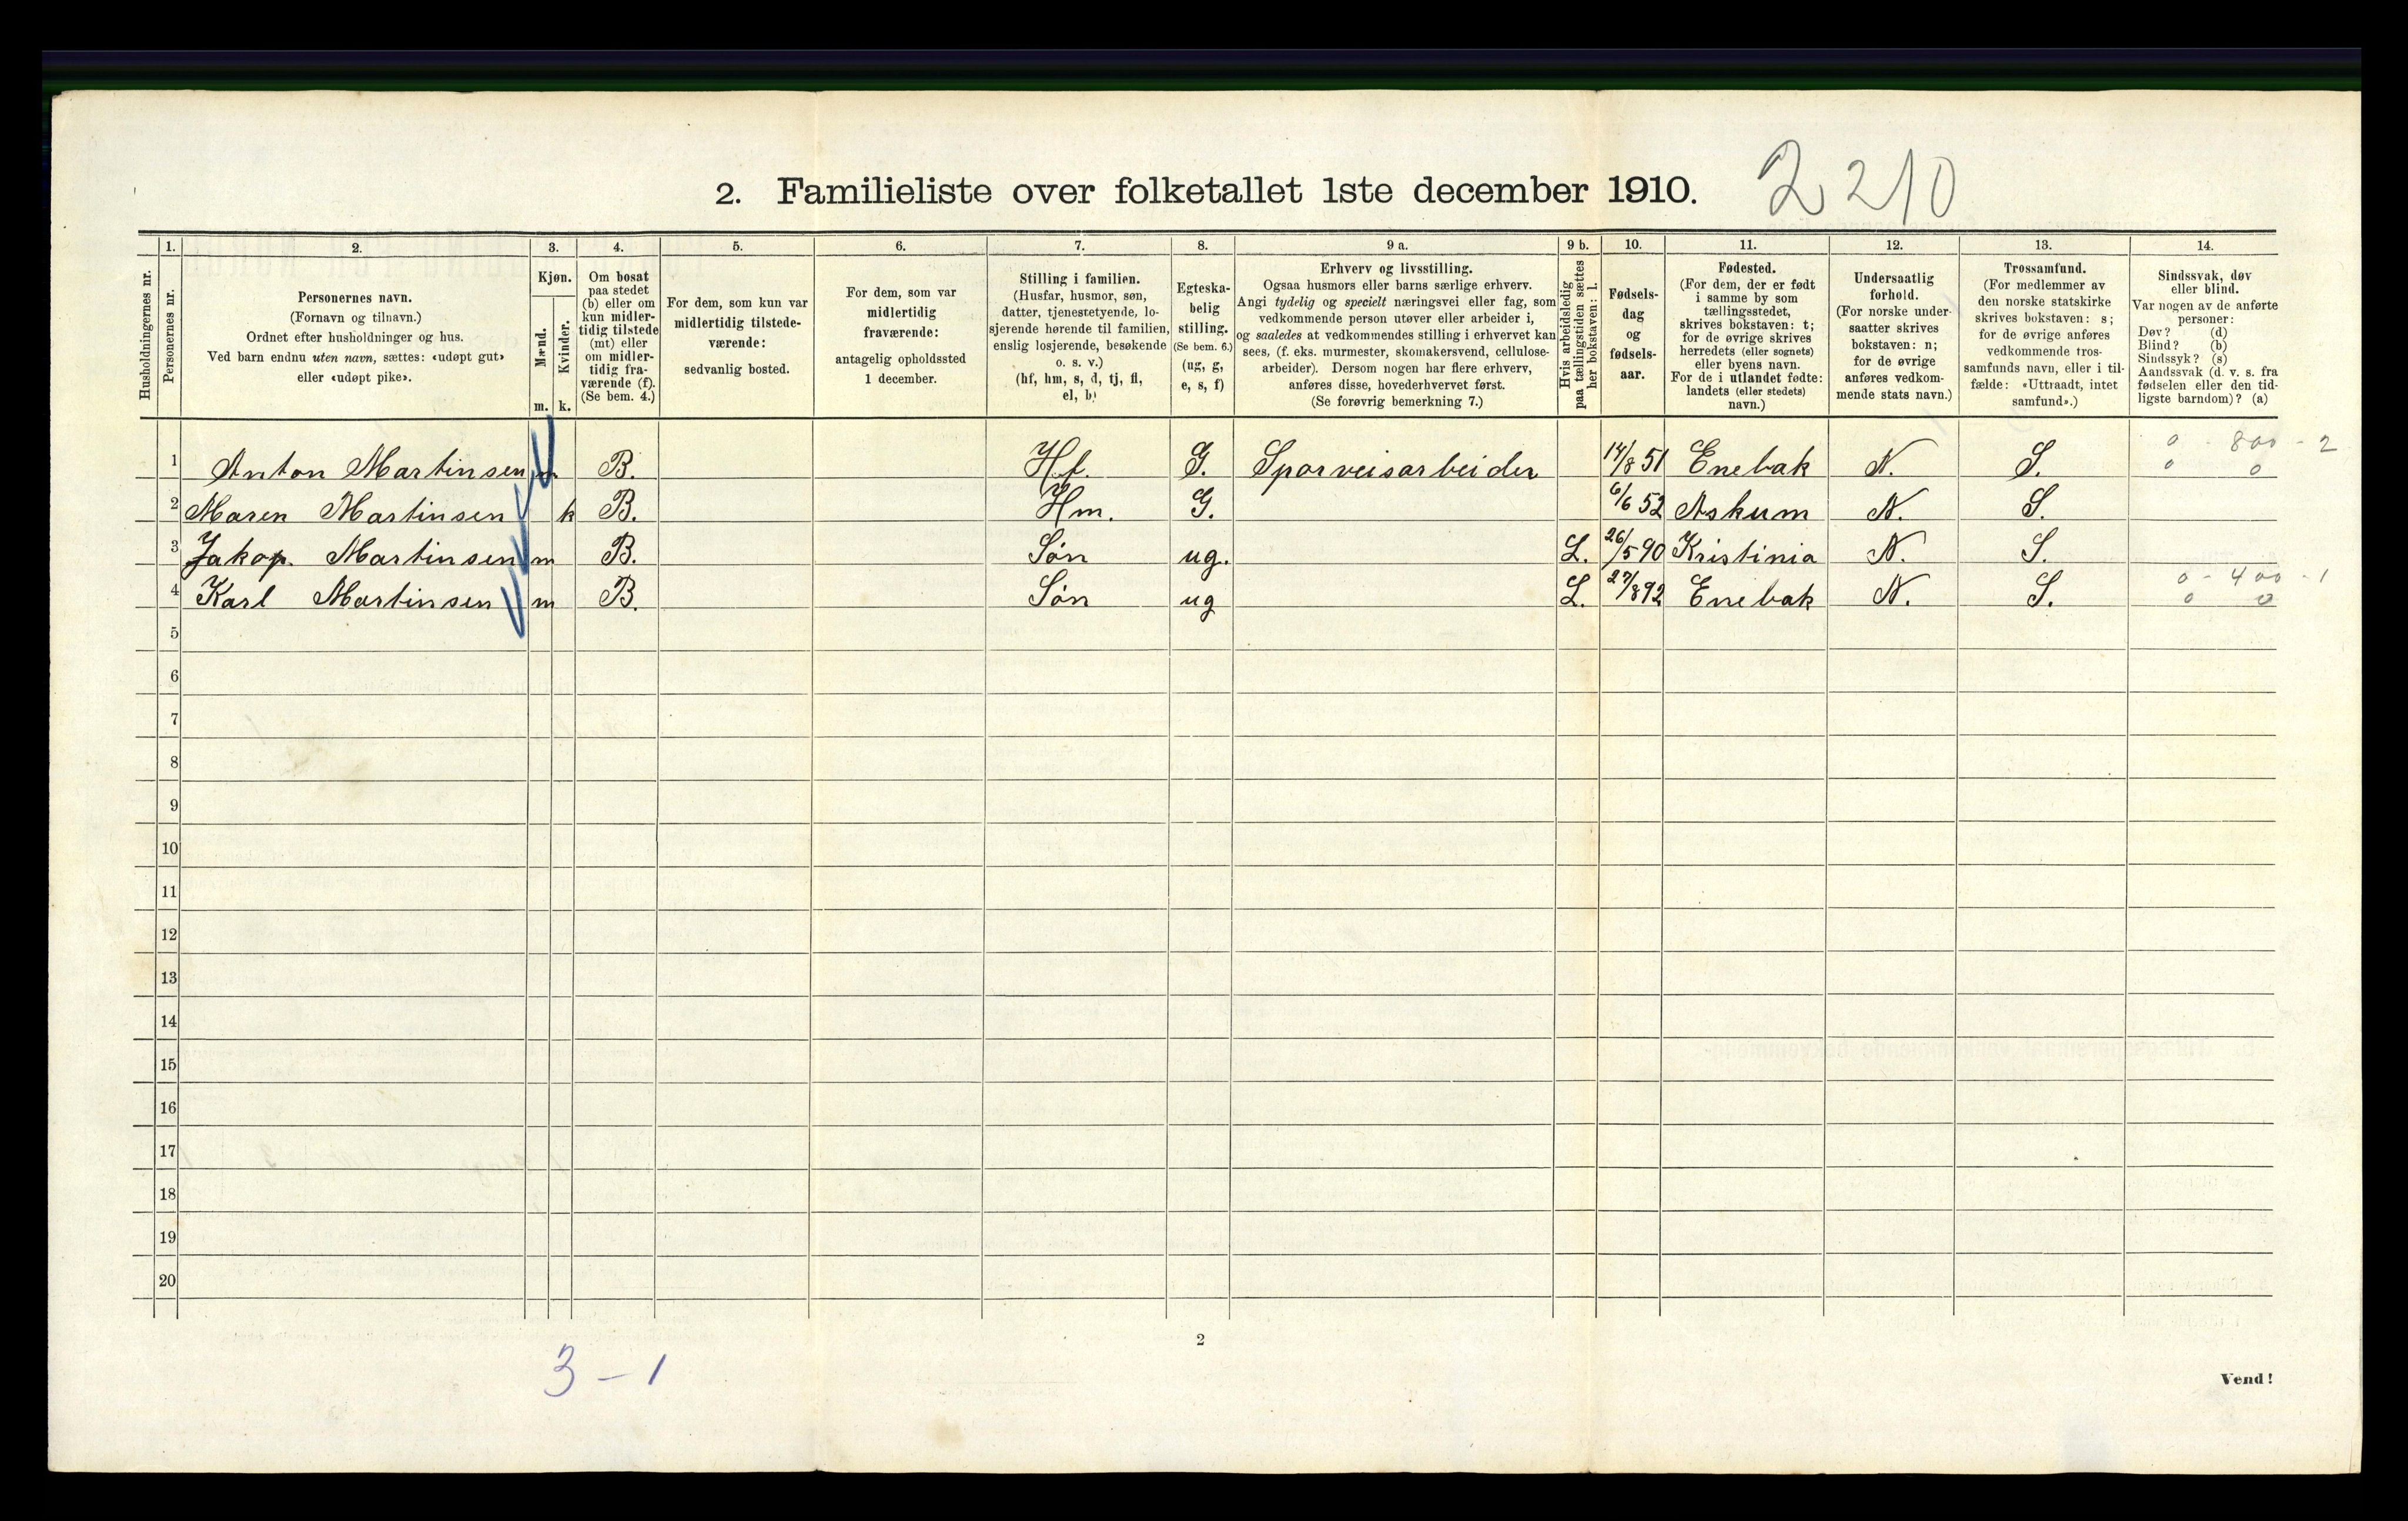 2. Familieliste over folketallet 1ste december 1910. 2210
Husholdningernes nr.
1.
Personernes nr.
2.
Personernes navn.
(Fornavn og tilnavn.)
Ordnet efter husholdninger og hus.
Ved barn endnu uten navn, sættes: «udøpt gut»
eller «udøpt pike».
3.
Kjøn.
Mænd.
Kvinder.
m. k.
4.
Om bosat
paa stedet
(b) eller om
kun midler-
tidig tilstede
(mt) eller
om midler-
tidig fra-
værende (f).
(Se bem. 4.)
5.
For dem, som kun var
midlertidig tilstede-
værende:
sedvanlig bosted.
6.
For dem, som var
midlertidig
fraværende:
antagelig opholdssted
1 december.
7.
Stilling i familien.
(Husfar, husmor, søn,
datter, tjenestetyende, lo-
sjerende hørende til familien,
enslig losjerende, besøkende
o. s. v.)
(hf, hm, s, d, tj, fl,
el, b)
8.
Egteska-
belig
stilling.
(Se bem. 6.)
(ug, g,
e, s, f)
9 a.
Erhverv og livsstilling.
Ogsaa husmors eller barns særlige erhverv.
Angi tydelig og specielt næringsvei eller fag, som
vedkommende person utøver eller arbeider i,
og saaledes at vedkommendes stilling i erhvervet kan
sees, (f. eks. murmester, skomakersvend, cellulose-
arbeider). Dersom nogen har flere erhverv,
anføres disse, hovederhvervet først.
(Se forøvrig bemerkning 7.)
9 b.
Hvis arbeidsledig
paa tællingstiden sættes
her bokstaven: l.
10.
Fødsels-
dag
og
fødsels-
aar.
11.
Fødested.
(For dem, der er født
i samme by som
tællingsstedet,
skrives bokstaven: t;
for de øvrige skrives
herredets (eller sognets)
eller byens navn.
For de i utlandet fødte:
landets (eller stedets)
navn.)
12.
Undersaatlig
forhold.
(For norske under-
saatter skrives
bokstaven: n;
for de øvrige
anføres vedkom-
mende stats navn.)
13.
Trossamfund.
(For medlemmer av
den norske statskirke
skrives bokstaven: s;
for de øvrige anføres
vedkommende tros-
samfunds navn, eller i til-
fælde: «Uttraadt, intet
samfund».)
14.
Sindssvak, døv
eller blind.
Var nogen av de anførte
personer:
Døv? (d)
Blind? (b)
Sindssyk? (s)
Aandssvak (d. v. s. fra
fødselen eller den tid-
ligste barndom)? (a)
0 - 800 - 2
1 Anton Martinsen m B. Hf. G. Sporveisarbeider 14/8 51 Enebak N. S. 0 0
2 Maren Martinsen k B. Hm. G. 6/6 52 Askum N. S.
3 Jakop. Martinsen m B. Søn ug. L. 26/5 90 Kristinia N. S.
0 - 400 - 1
4 Karl Martinsen m B. Søn ug L. 27/8 92 Enebak N. S. 0 0
5
6
7
8
9
10
11
12
13
14
15
16
17
18
19
20
2
3 - 1
Vend!